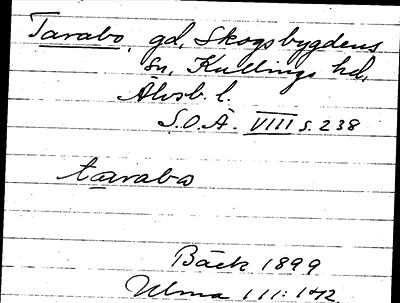 Tarabo, gd, Skogsbygdens
sn, Kullings hd,
Älvsb. l.
S.O.Ä. VIII s. 238
tarabo
Bäck 1899
Ulma 111: 142.